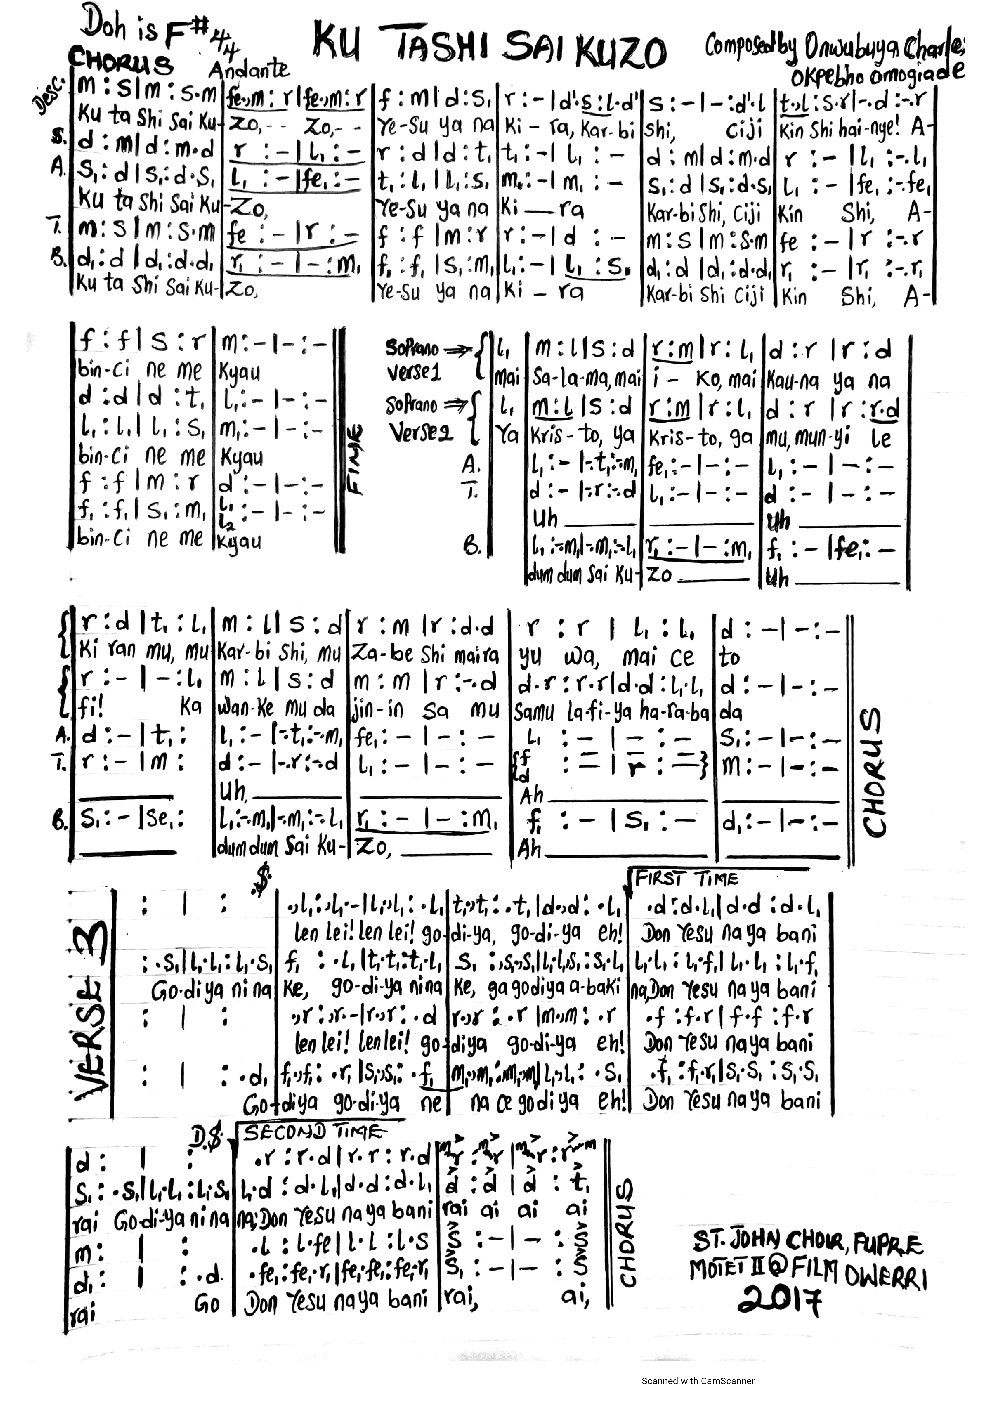 Doh is F# 4/4
KU TASHI SAI KUZO
Composed by Onwubuya Charles
Okpebho omogiade
CHORUS Andante
Desc. m : s | m : s.m | fe.,m : r | fe.,m : r | f : m | d : s, | r : - | d' s : l.d' | s : - | - : d'.l | t.,l : s.r | -.d : -.r
Ku ta Shi Sai Ku- Zo, - - Zo, - - Ye-Su ya na Ki - ra, Kar-bi Shi, Ciji Kin Shi hai-nye! A-
S. d : m | d : m.d | r : - | l, : - | r : d | d : t, | t, : - | l, : - | d : m | d : m.d | r : - | l, : -.l,
A. s, : d | s, : d.s, | l, : - | fe, : - | t, : l, | l, : s, | m, : - | m, : - | s, : d | s, : d.s, | l, : - | fe, : -.fe,
Ku ta Shi Sai Ku- Zo, Ye-Su ya na Ki — ra Kar-bi Shi, Ciji Kin Shi, A-
T. m : s | m : s.m | fe : - | r : - | f : f | m : r | r : - | d : - | m : s | m : s.m | fe : - | r : -.r
B. d, : d | d, : d.d, | r, : - | - : m, | f, : f, | s, : m, | l, : - | l, : s, | d, : d | d, : d.d, | r, : - | r, : -.r,
Ku ta Shi Sai Ku- Zo, Ye-Su ya na Ki - ra Kar-bi Shi Ciji Kin Shi, A-
f : f | s : r | m : - | - : -
bin-ci ne me Kyau
d : d | d : t, | l, : - | - : -
l, : l, | l, : s, | m, : - | - : -
bin-ci ne me Kyau
f : f | m : r | d : - | - : -
f, : f, | s, : m, | l, l₂ : - | - : -
bin-ci ne me Kyau
FINE
Soprano Verse 1 l, | m : l | s : d | r : m | r : l, | d : r | r : d
Mai Sa-la-ma, mai i - Ko, mai Kau-na ya na
Soprano Verse 2 l, | m : l | s : d | r : m | r : l, | d : r | r : r.d
Ya Kris-to, ya Kris-to, ga mu, mun-yi le
A. l, : - | -.t, : -.m, | fe, : - | - : - | l, : - | - : -
T. d : - | -.r : -.d | l, : - | - : - | d : - | - : -
Uh Uh
B. l, : -.m, | -.m, : -.l, | r, : - | - : m, | f, : - | fe, : -
dum dum Sai Ku- Zo Uh
r : d | t, : l, | m : l | s : d | r : m | r : d.d | r : r | l, : l, | d : - | - : -
Ki ran mu, mu Kar-bi Shi, mu Za-be Shi mai ra yu wa, mai ce to
r : - | - : l, | m : l | s : d | m : m | r : -.d | d.r : r.r | d.d : l,.l, | d : - | - : -
fi! Ka Wan-Ke mu da jin-in sa mu Samu la-fi-ya ha-ra-ba da
A. d : - | t, : | l, : - | -.t, : -.m, | fe, : - | - : - | l, : - | - : - | s, : - | - : -
T. r : - | m : | d : - | -.r : -.d | l, : - | - : - | {f d : - | r : -} | m : - | - : -
Uh, Ah
B. s, : - | se, : | l, : -.m, | -.m, : -.l, | r, : - | - : m, | f, : - | s, : - | d, : - | - : -
dum dum Sai Ku- Zo, Ah
CHORUS
VERSE 3
FIRST TIME
: | : | .,l, : .,l,.- | l,.,l, : .l, | t,.,t, : .t, | d.,d : .l, | .d : d.l, | d.d : d.l,
len lei! len lei! go-di-ya, go-di-ya eh! Don Yesu na ya bani
: .s, | l,.l, : l,.s, | f, : .l, | t,.t, : t,.l, | s, : .,s,.s, | l,.l,s, : s,.l, | l,.l, : l,.f, | l,.l, : l,.f,
Go-di ya ni na Ke, go-di-ya ni na Ke, ga godiya a-baki na, Don Yesu na ya bani
: | : | .,r : .,r.- | r.,r : .d | r.,r : .r | m.,m : .r | .f : f.r | f.f : f.r
len lei! len lei! go-diya go-di-ya eh! Don Yesu na ya bani
: | : .d, | f,.,f, : .r, | s,.,s, : .f, | m,.,m, : m,.m, | l,.l, : .s, | .f, : f,.r, | s,.s, : s,.s,
Go-diya go-di-ya ne na ce godiya eh! Don Yesu na ya bani
D.S SECOND TIME
d : | : | .r : r.d | r.r : r.d | m r : m r | m r : r m
s, : .s, | l,.l, : l,.s, | l,.d : d.l, | d.d : d.l, | d : d | d : t,
rai Go-di-ya ni na na, Don Yesu na ya bani rai ai ai ai
m : | : | .l : l.fe | l.l : l.s | s : - | - : s
d, : | : .d, | .fe, : fe,.r, | fe,.fe, : fe,.r, | s, : - | - : s
rai Go Don Yesu na ya bani rai, ai,
CHORUS
ST. JOHN CHOIR, FUPRE
MOTET II @ FILM OWERRI
2017
Scanned with CamScanner